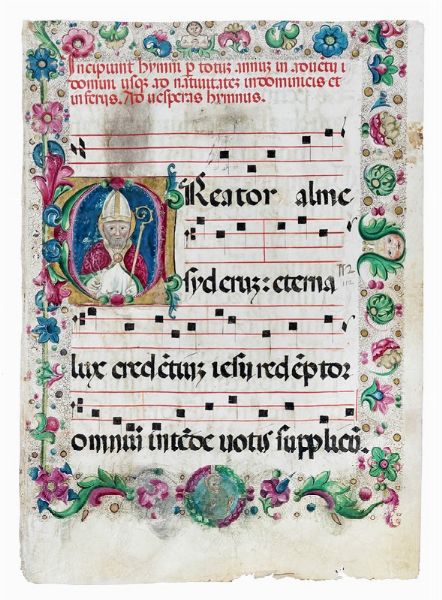 Incipiunt hymni p totuz annuz in aduētu
domini usqz ad natiuitatez in dominicis et
in ferijs. Ad uesperas hymnus.
Creator alme
syderuz: eterna
112
112
lux credētiuz iesu redēptor
omniū intēde uotis supplicū.